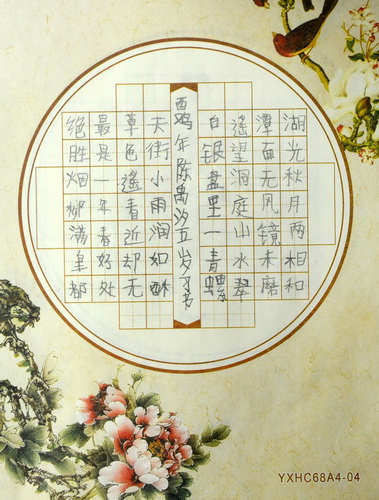 湖光秋月两相和
潭面无风镜未磨
遥望洞庭山水翠
白银盘里一青螺
酉鸡年陈禹汐五岁书
天街小雨润如酥
草色遥看近却无
最是一年春好处
绝胜烟柳满皇都
YXHC68A4-04